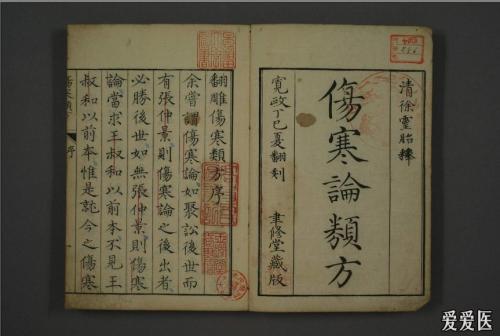 清徐靈胎釋
傷寒論類方
寬政丁巳夏翻刻
聿修堂藏版
翻雕傷寒類方序
余嘗謂傷寒論如聚訟後世而
有張仲景則傷寒論之後出者
必勝後世如無張仲景則傷寒
論當求王叔和以前本不見王
叔和以前本惟是託今之傷寒
序
爱爱医